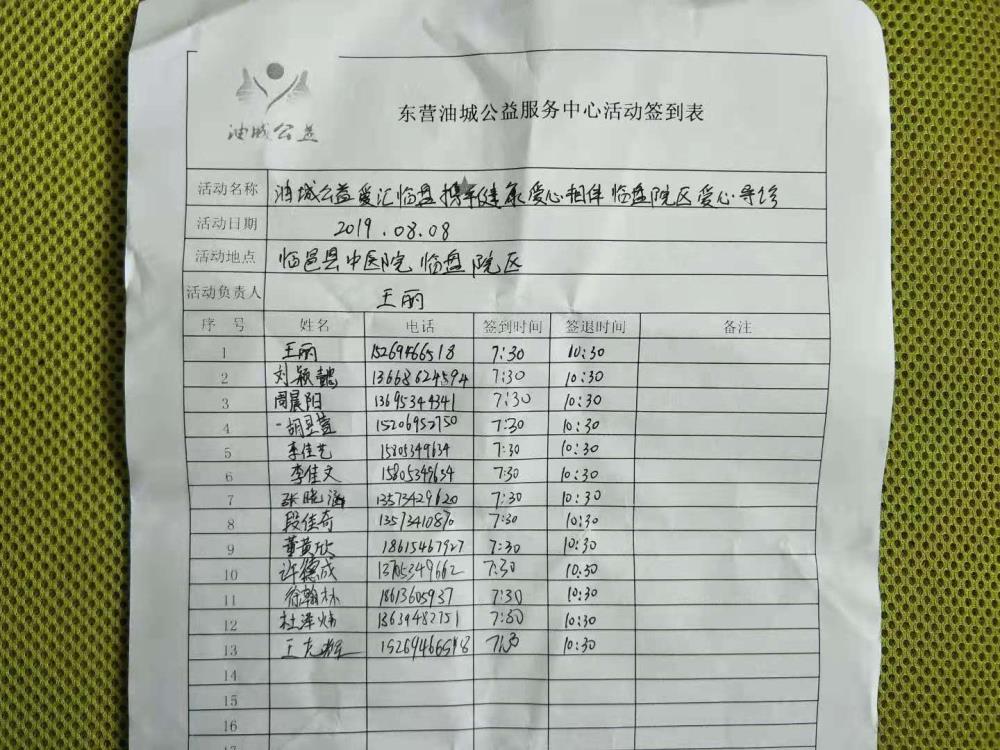 油城公益
东营油城公益服务中心活动签到表
活动名称 油城公益爱汇临盘携手健康爱心相伴临盘院区爱心导诊
活动日期 2019.08.08
活动地点 临邑县中医院临盘院区
活动负责人 王丽
序号 姓名 电话 签到时间 签退时间 备注
1 王丽 15269466518 7:30 10:30
2 刘颖懿 13668624594 7:30 10:30
3 周晨阳 13695344341 7:30 10:30
4 胡昱萱 15206952750 7:30 10:30
5 李佳艺 15805349634 7:30 10:30
6 李佳文 15805349634 7:30 10:30
7 张晓涵 13573429620 7:30 10:30
8 段佳奇 13573410870 7:30 10:30
9 董黄欣 18615467927 7:30 10:30
10 许德成 13705349662 7:30 10:30
11 徐翰林 18613605937 7:30 10:30
12 杜泽炜 13639482751 7:30 10:30
13 王克辉 15269466518 7:30 10:30
14
15
16